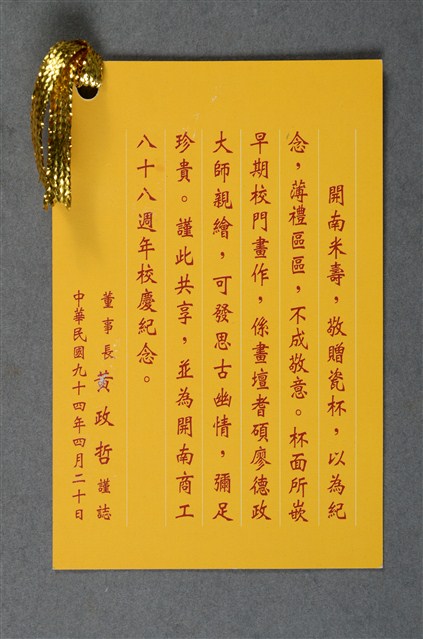 開南米壽，敬贈瓷杯，以為紀
念，薄禮區區，不成敬意。杯面所嵌
早期校門畫作，係畫壇耆碩廖德政
大師親繪，可發思古幽情，彌足
珍貴。謹此共享，並為開南商工
八十八週年校慶紀念。
董事長黃政哲謹誌
中華民國九十四年四月二十日